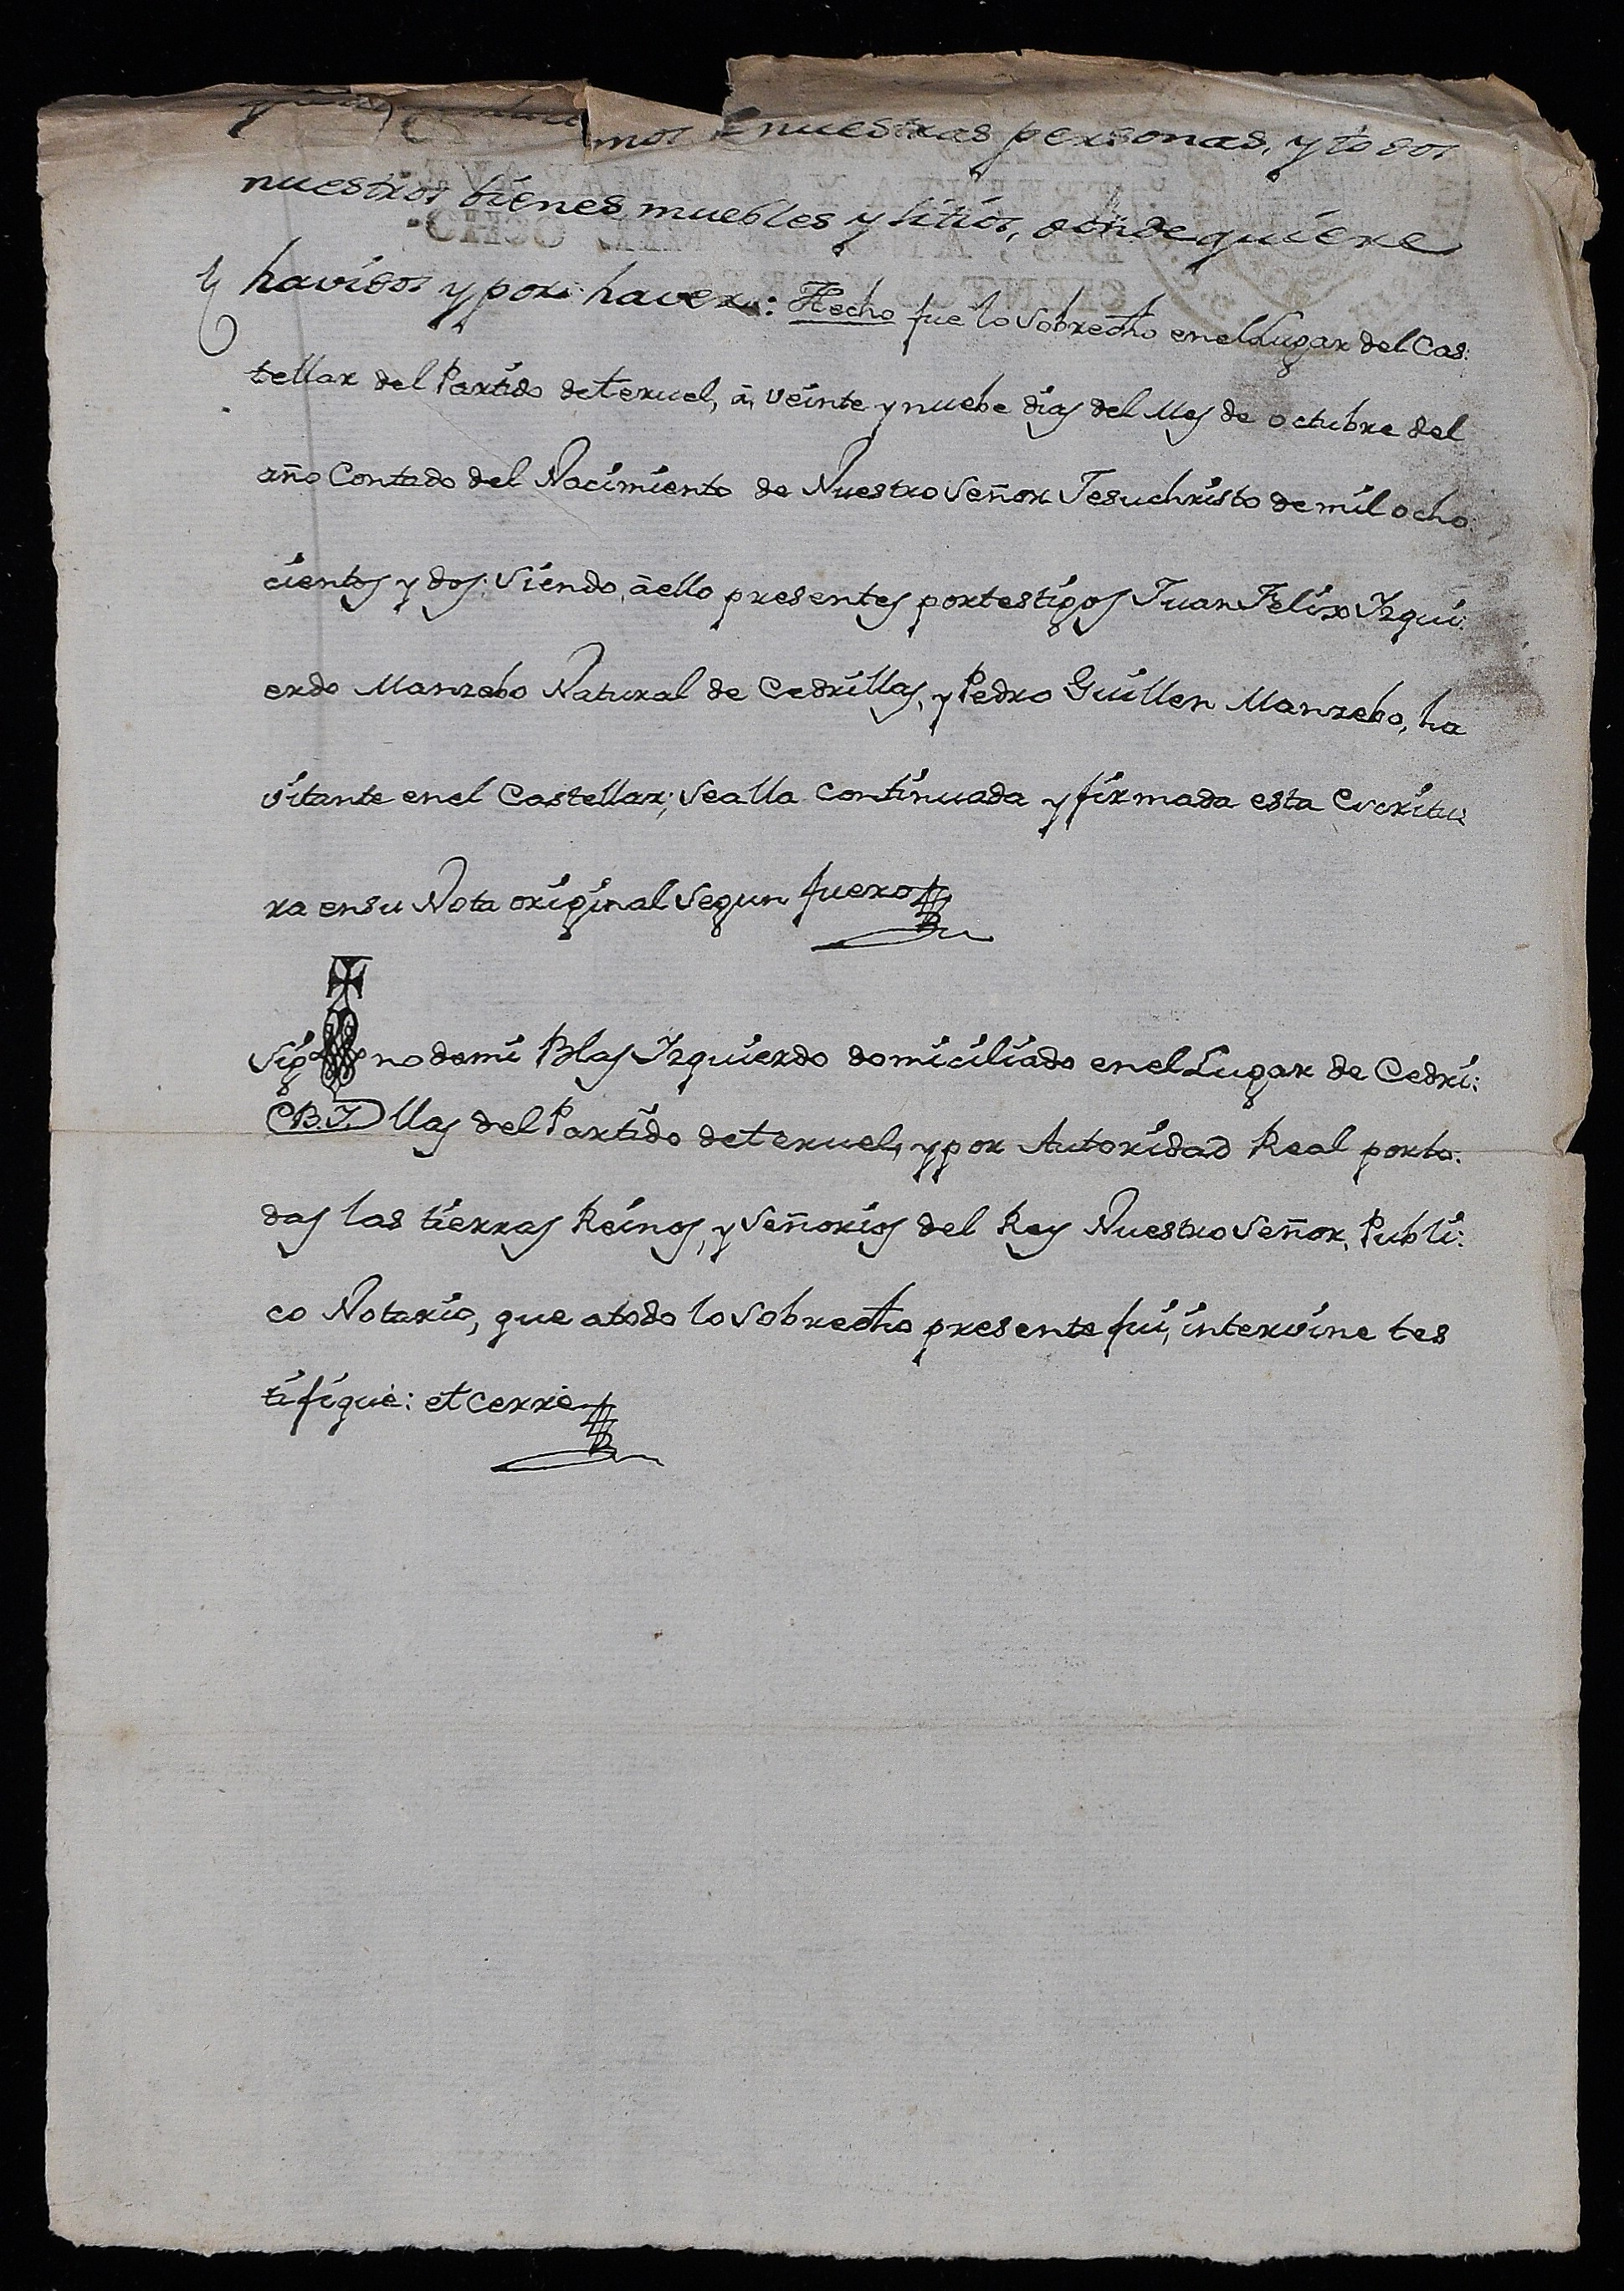 mos nuestras personas, y todos
nuestros bienes muebles y sitios, donde quiere
havidos y por haver: Hecho fue lo sobredho en el Lugar del Cas:
tellar del Partido de Teruel, à, veinte y nuebe dias del Mes de octubre del
año Contado del Nacimiento de Nuestro Señor Jesuchristo de mil ocho
cientos y dos: Siendo, à ello presentes por testigos Juan Felix Yzqui:
erdo Manzebo Natural de Cedrillas, y Pedro Guillen Manzebo, ha
vitante en el Castellar; Se alla continuada y firmada esta Escritu:
ra en su Nota original Segun fuero
Sig no de mi Blas Yzquierdo domiciliado en el Lugar de Cedri:
B.Y. llas del Partido de Teruel, y por Autoridad Real por to:
das las tierras Reinos, y Señorios del Rey Nuestro Señor, Publi:
co Notario, que a todo lo Sobredho presente fui, intervine tes
tifique: et cerre